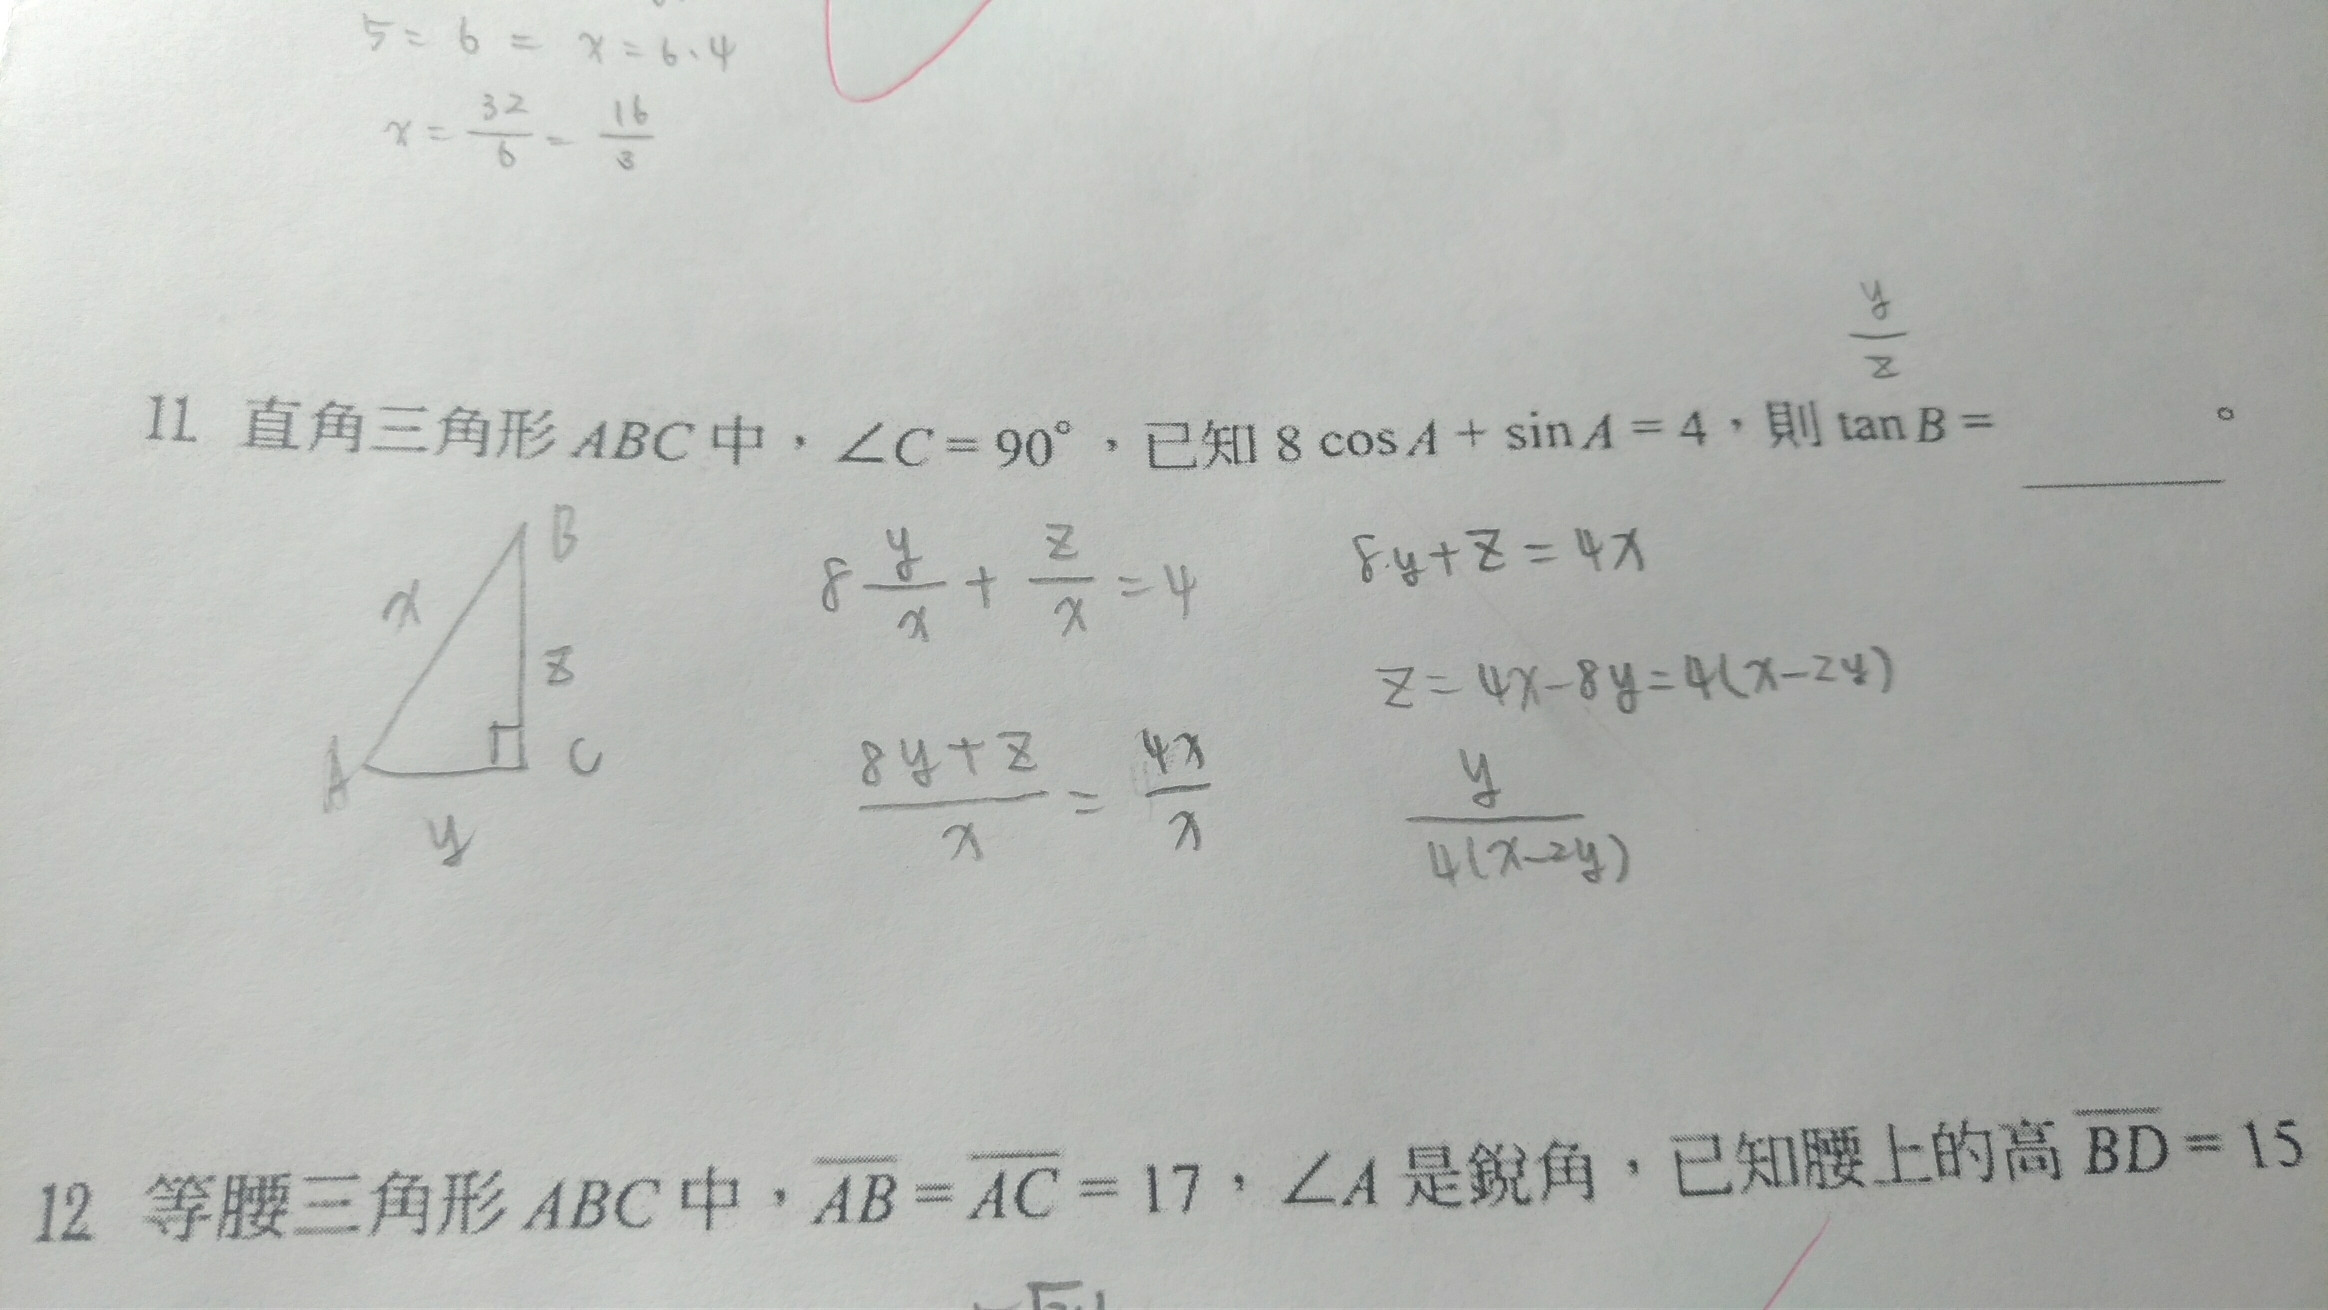 5 = 6 = x = 6.4
x = 32/6 = 16/3
y/z
11 直角三角形 ABC 中，∠C = 90°，已知 8 cos A + sin A = 4，則 tan B = ______。
B
x
z
A
C
y
8 y/x + z/x = 4
8y+z = 4x
z = 4x-8y = 4(x-2y)
(8y+z)/x = 4x/x
y/4(x-2y)
12 等腰三角形 ABC 中，A̅B̅ = A̅C̅ = 17，∠A 是銳角，已知腰上的高 B̅D̅ = 15